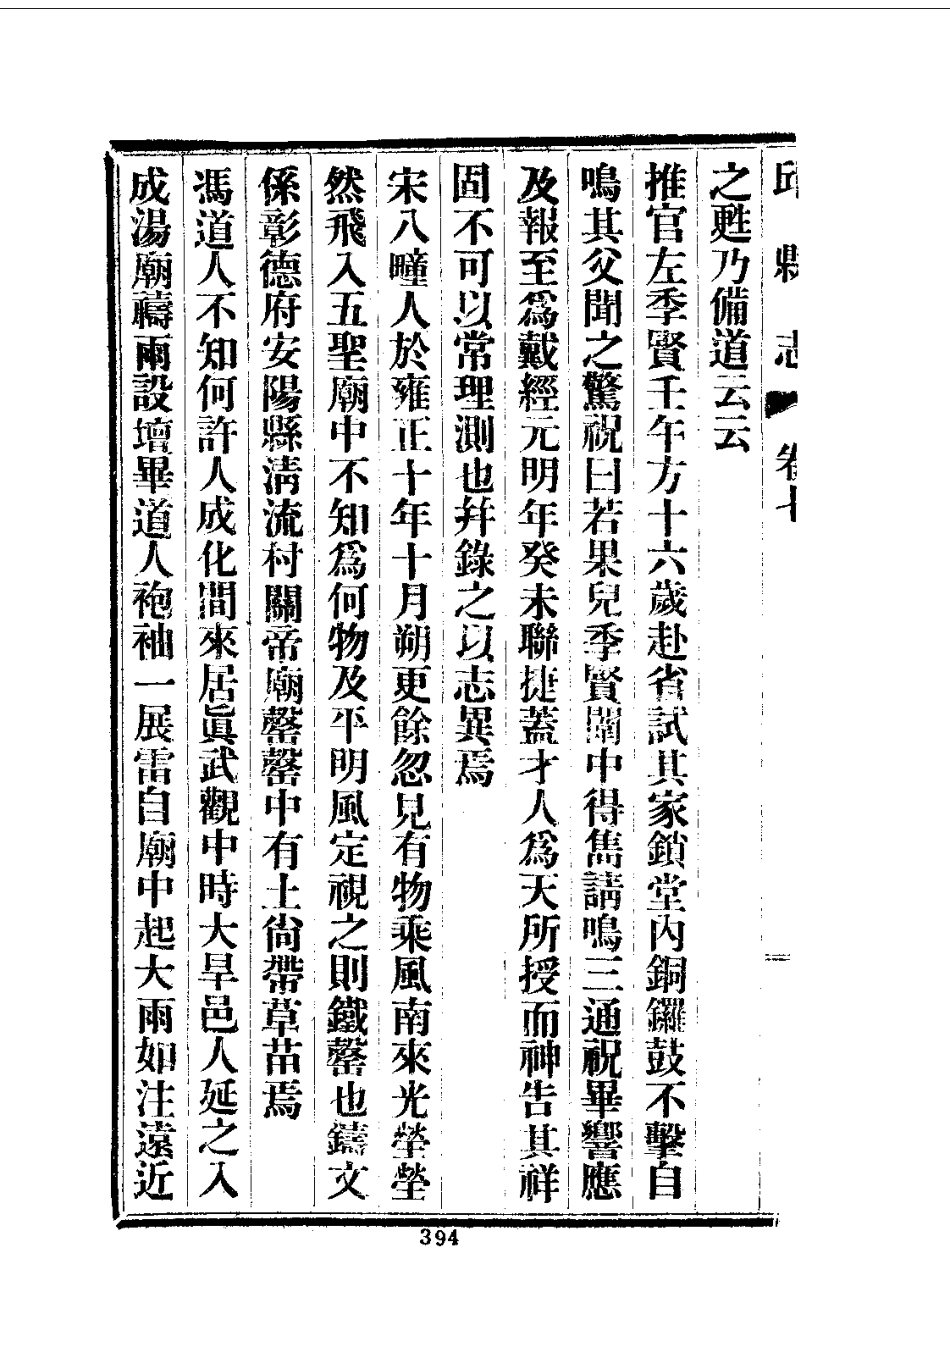 邱縣志 卷七
之甦乃備道云云
推官左季賢壬午方十六歲赴省試其家鎖堂內銅鑼鼓不擊自
鳴其父聞之驚祝曰若果兒季賢闈中得雋請鳴三通祝畢響應
及報至爲戴經元明年癸未聯捷蓋才人爲天所授而神告其祥
固不可以常理測也幷錄之以志異焉
宋八疃人於雍正十年十月朔更餘忽見有物乘風南來光瑩瑩
然飛入五聖廟中不知爲何物及平明風定視之則鐵罄也鑄文
係彰德府安陽縣淸流村關帝廟罄罄中有土尙帶草苗焉
馮道人不知何許人成化間來居眞武觀中時大旱邑人延之入
成湯廟禱雨設壇畢道人袍袖一展雷自廟中起大雨如注遠近
394